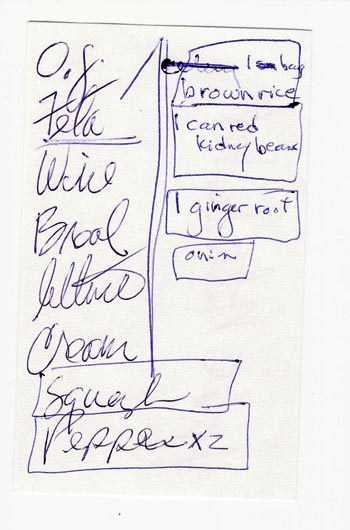 O.J.
Feta
Wine
Bread
lettuce
Cream
Squash
Pepper x2
1 sm bag
brown rice
1 can red
kidney beans
1 ginger root
onion